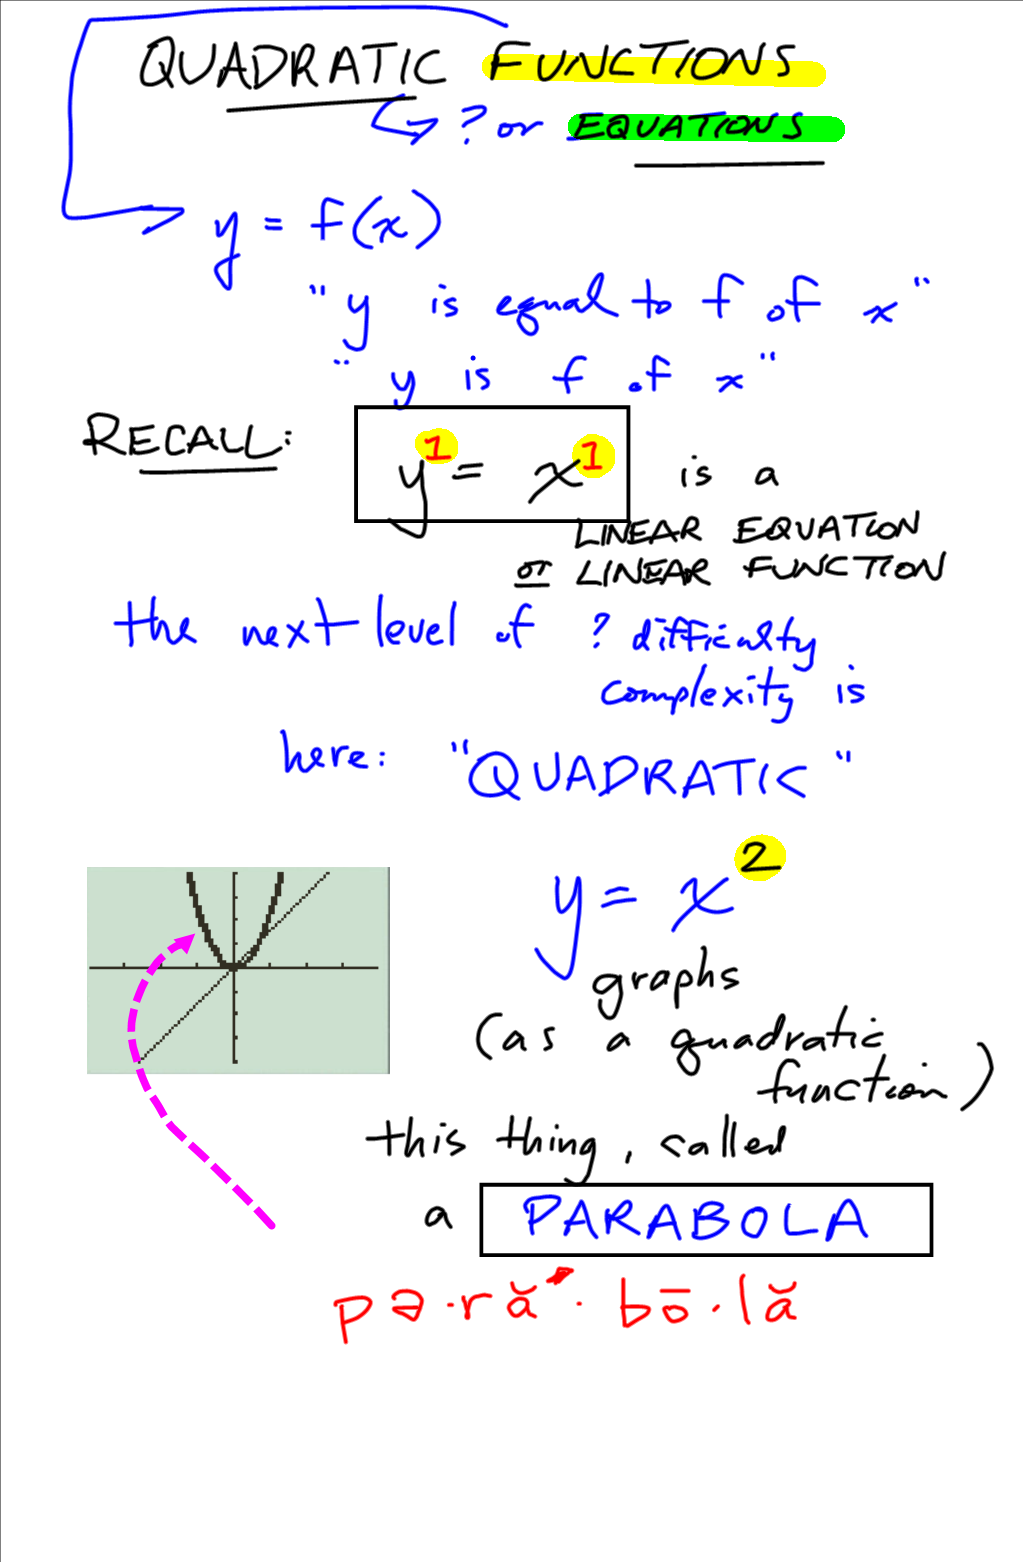 QUADRATIC FUNCTIONS
? or EQUATIONS
y = f(x)
"y is equal to f of x"
"y is f of x"
RECALL: y¹ = x¹ is a
LINEAR EQUATION
or LINEAR FUNCTION
the next level of ? difficulty
complexity is
here: "QUADRATIC"
y = x²
graphs
(as a quadratic
function)
this thing, called
a PARABOLA
pə·ră'·bō·lă